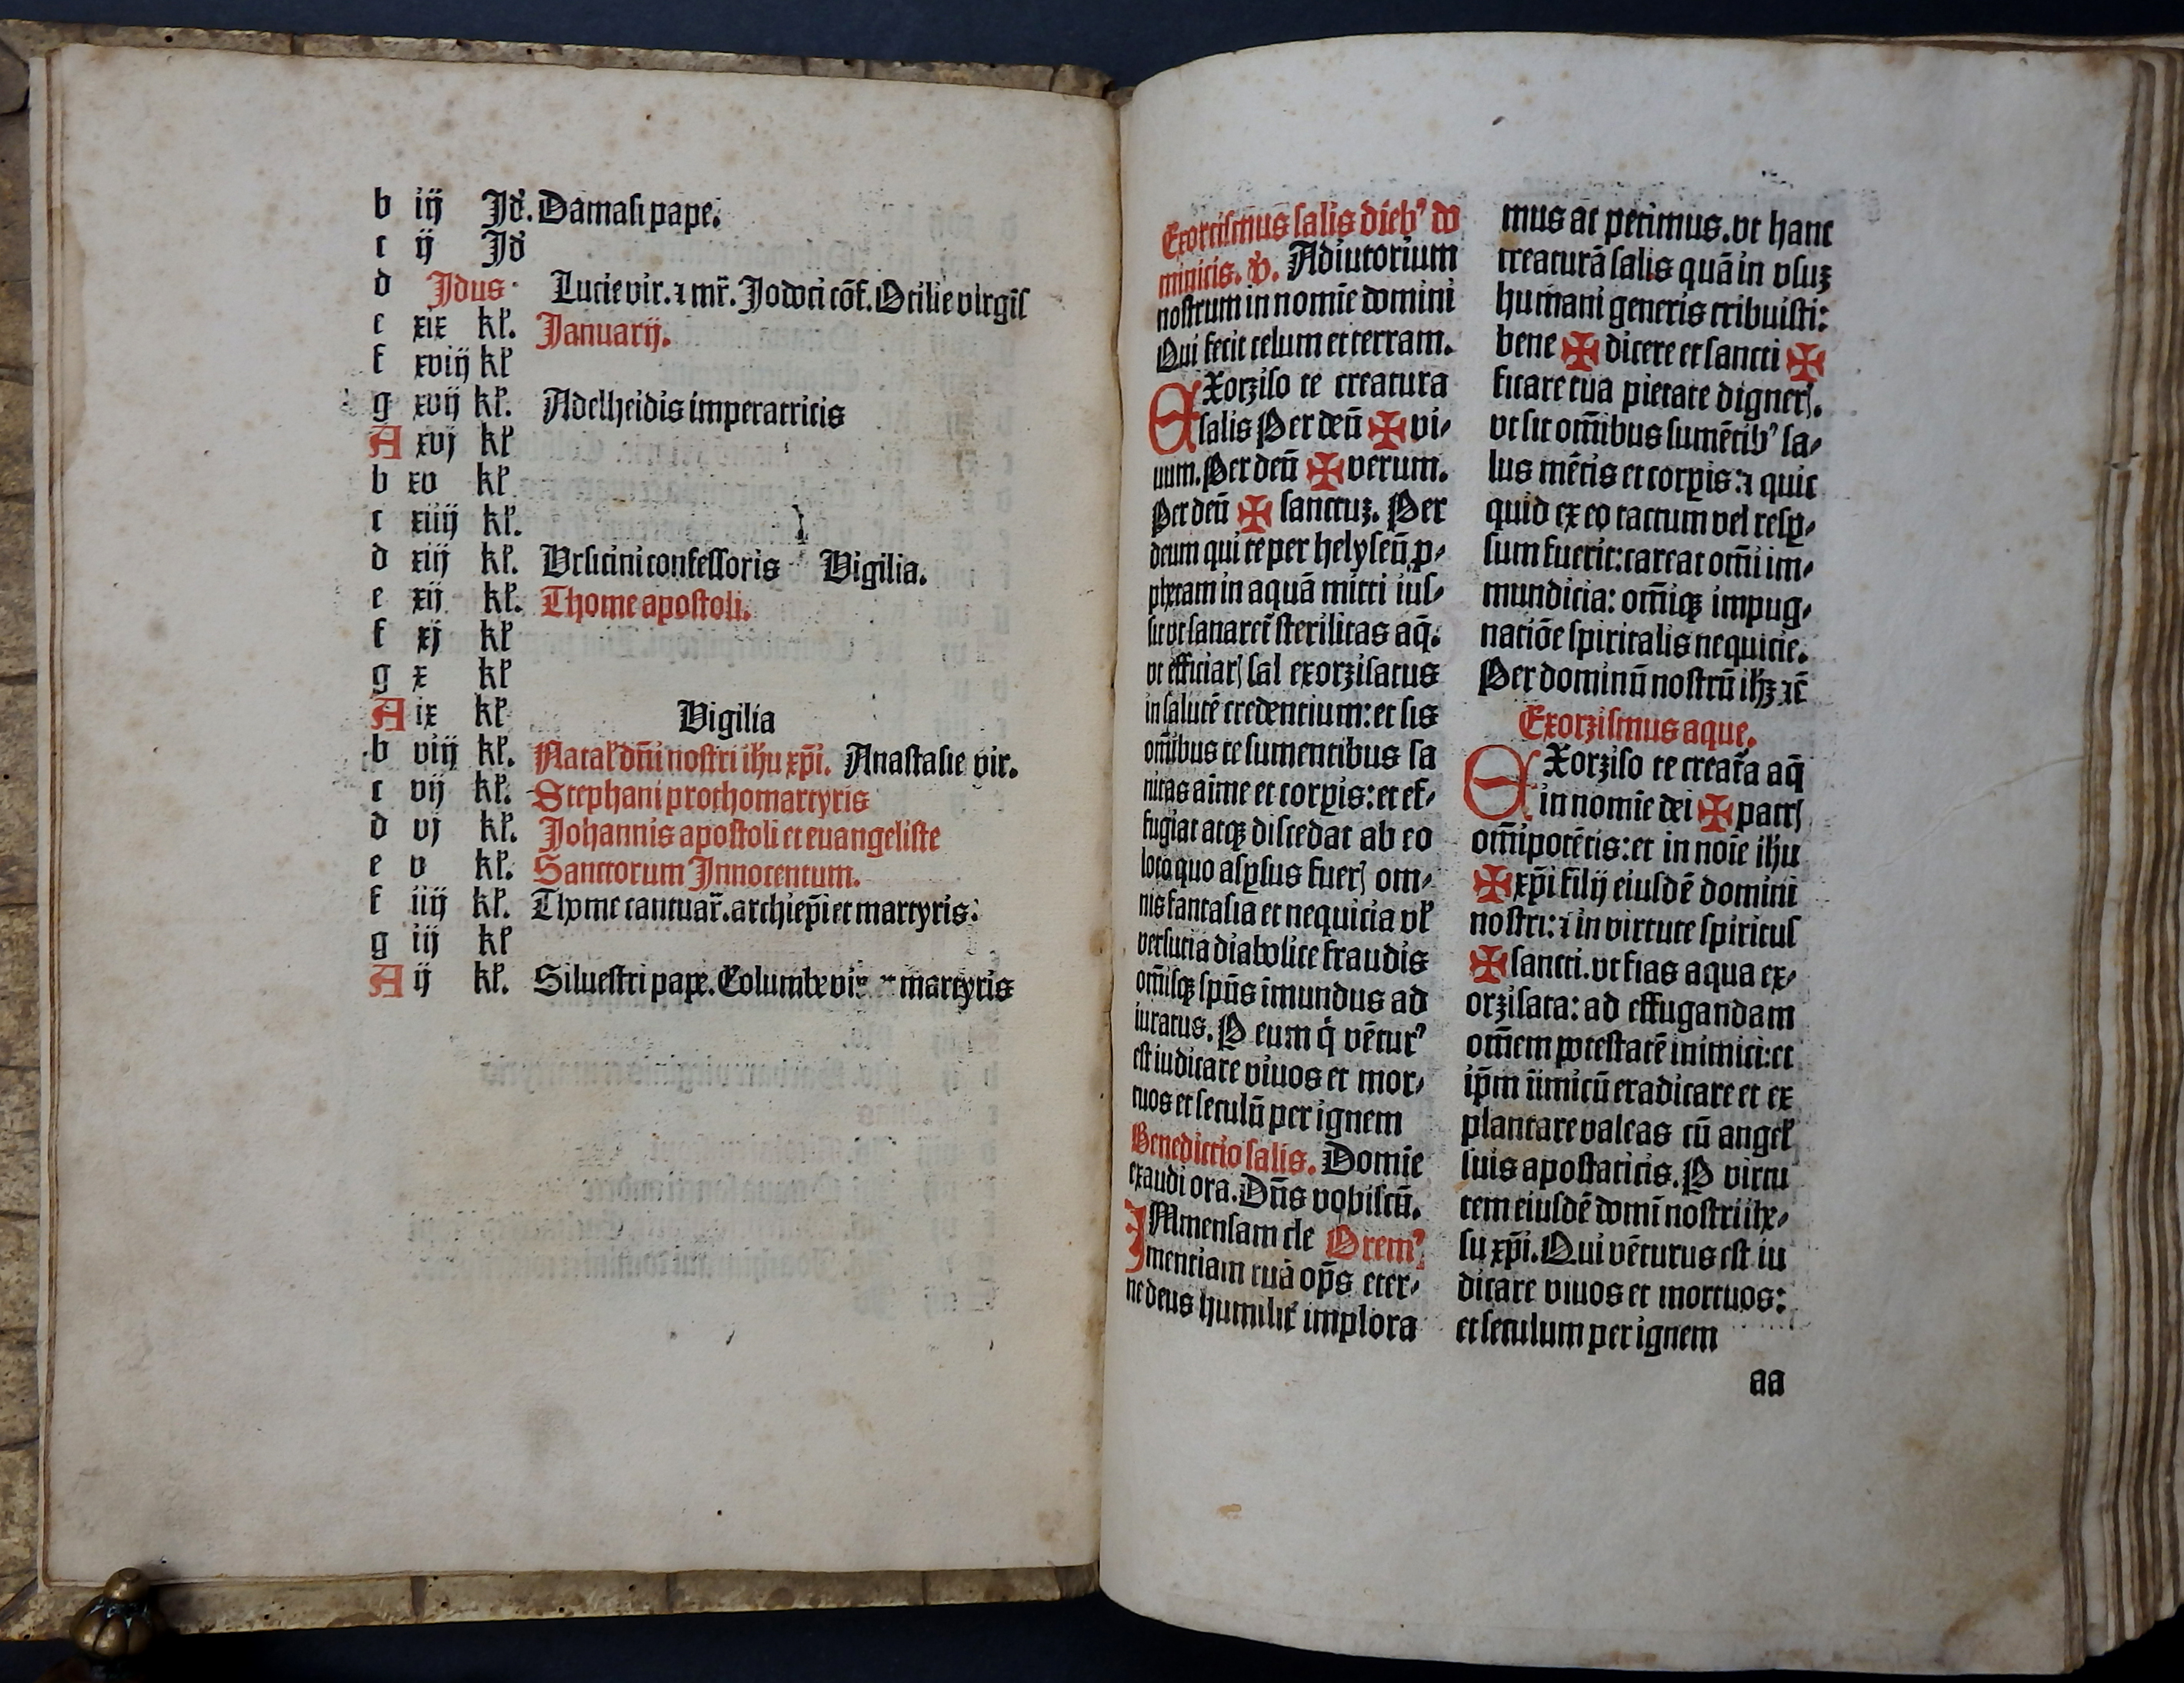 b iij Jd. Damasi pape.
c ij Jd
d Jdus Lucie vir. ⁊ mr̄. Jodoci cōf. Otilie virgīs
e xix kl. Januarij.
f xviij kl
g xvij kl. Adelheidis imperatricis
A xvj kl
b xv kl
c xiiij kl.
d xiij kl. Vrsicini confessoris Vigilia.
e xij kl. Thome apostoli.
f xj kl
g x kl
A ix kl Vigilia
b viij kl. Natal dn̄i nostri ihu xp̄i. Anastasie vir.
c vij kl. Stephani prothomartyris
d vj kl. Johannis apostoli et euangeliste
e v kl. Sanctorum Jnnocentum.
f iiij kl. Thome cantuar̄. archiep̄i et martyris.
g iij kl
A ij kl. Siluestri pape. Columbe vir ⁊ martyris
Exorcismus salis dieb⁹ do
minicis. v̄. Adiutorium
nostrum in nomīe domini
Qui fecit celum et terram.
EXorziso te creatura
salis Per deū ✠ vi⸗
uum. Per deū ✠ verum.
Per deū ✠ sanctuꝫ. Per
deum qui te per helyseū ꝓ⸗
phetam in aquā mitti ius⸗
sit vt sanaret̄ sterilitas aq̄.
vt efficiarꝭ sal exorzisatus
in salutē credentium: et sis
om̄ibus te sumentibus sa
nitas aīme et corꝑis: et ef⸗
fugiat atqꝫ discedat ab eo
loco quo asꝑsus fuerꝭ om⸗
nis fantasia et nequicia vl̄
versucia diabolice fraudis
om̄isqꝫ spūs īmundus ad
iuratus. P̱ eum q̇ vētur⁹
est iudicare viuos et mor⸗
tuos et seculū per ignem
Benedictio salis. Domīe
exaudi ora. Dn̄s vobiscū.
JMmensam cle Orem⁹
mentiam tuā op̄s eter⸗
ne deus humilit̄ implora
mus ac petimus. vt hanc
creaturā salis quā in vsuꝫ
humani generis tribuisti:
bene ✠ dicere et sancti ✠
ficare tua pietate dignerꝭ.
vt sit om̄ibus sumētib⁹ sa⸗
lus mētis et corꝑis: ⁊ quic
quid ex eo tactum vel resꝑ⸗
sum fuerit: careat om̄i im⸗
mundicia: om̄iqꝫ impug⸗
natiōe spiritalis nequicie.
Per dominū nostrū ihꝫ ⁊c̄
Exorzismus aque.
EXorziso te creat̄a aq̄
in nomīe dei ✠ patrꝭ
om̄ipotētis: et in noīe ihu
✠ xp̄i filij eiusdē domini
nostri: ⁊ in virtute spiritus
✠ sancti. vt fias aqua ex⸗
orzisata: ad effugandam
om̄em potestatē inimici: et
ip̄m iīmicū eradicare et ex
plantare valeas cū angel̄
suis apostaticis. P̱ virtu
tem eiusdē domī nostri ihe⸗
su xp̄i. Qui vēturus est iu
dicare viuos et mortuos:
et seculum per ignem
aa